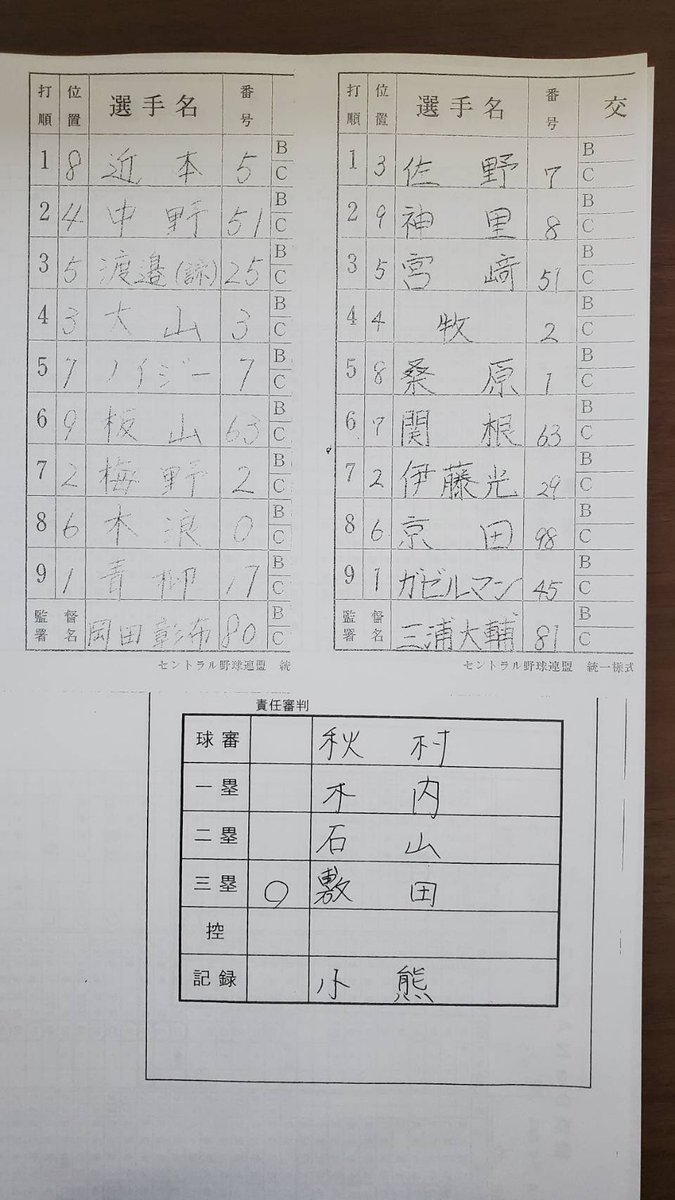 打順 位置 選手名 番号
1 8 近本 5 B C
2 4 中野 51 B C
3 5 渡邉(諒) 25 B C
4 3 大山 3 B C
5 7 ノイジー 7 B C
6 9 板山 63 B C
7 2 梅野 2 B C
8 6 木浪 0 B C
9 1 青柳 17 B C
監督署名 岡田彰布 80 B C
セントラル野球連盟 統
打順 位置 選手名 番号 交
1 3 佐野 7 B C
2 9 神里 8 B C
3 5 宮﨑 51 B C
4 4 牧 2 B C
5 8 桑原 1 B C
6 7 関根 63 B C
7 2 伊藤光 29 B C
8 6 京田 98 B C
9 1 ガゼルマン 45 B C
監督署名 三浦大輔 81 B C
セントラル野球連盟 統一様式
責任審判
球審 秋村
一塁 木内
二塁 石山
三塁 ○ 敷田
控
記録 小熊